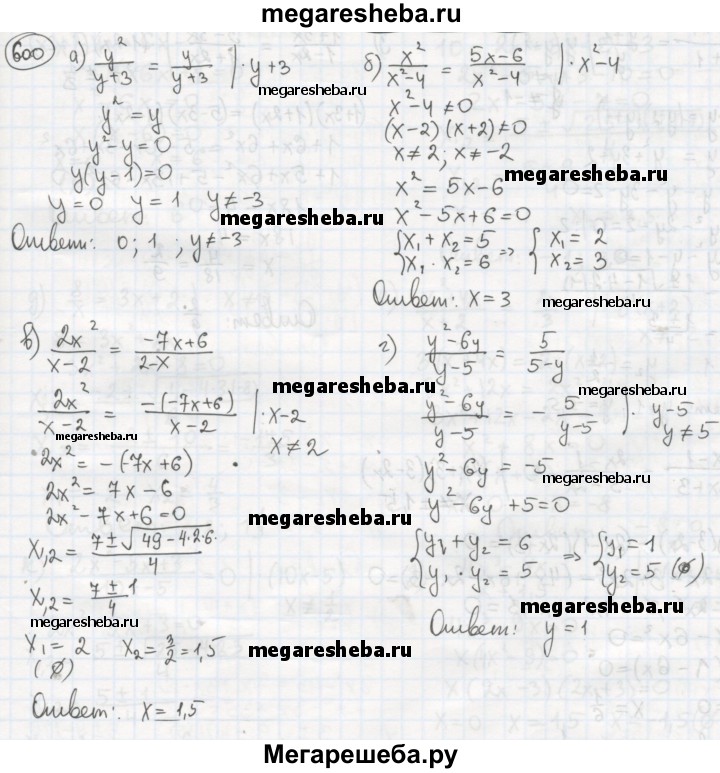 megaresheba.ru
600
а) y²/(y+3) = y/(y+3) | · y+3
megaresheba.ru
y² = y
y² - y = 0
y(y-1) = 0
y = 0 y = 1 y ≠ -3
megaresheba.ru
Ответ: 0; 1 ; y ≠ -3
б) x²/(x²-4) = (5x-6)/(x²-4) | · x²-4
x² - 4 ≠ 0
(x-2)(x+2) ≠ 0
x ≠ 2; x ≠ -2
megaresheba.ru
x² = 5x-6
x² - 5x + 6 = 0
{x₁ + x₂ = 5 ⇒ {x₁ = 2
{x₁ · x₂ = 6 {x₂ = 3
Ответ: x = 3
megaresheba.ru
в) 2x²/(x-2) = (-7x+6)/(2-x)
megaresheba.ru
2x²/(x-2) = -(-7x+6)/(x-2) | · x-2
megaresheba.ru
x ≠ 2
2x² = -(-7x+6)
2x² = 7x - 6
2x² - 7x + 6 = 0
megaresheba.ru
x₁,₂ = (7 ± √(49 - 4·2·6))/4
x₁,₂ = (7 ± 1)/4
megaresheba.ru
x₁ = 2 x₂ = 3/2 = 1,5
megaresheba.ru
(∅)
Ответ: x = 1,5
г) (y²-6y)/(y-5) = 5/(5-y)
megaresheba.ru
(y²-6y)/(y-5) = - 5/(y-5) | · y-5
y ≠ 5
y² - 6y = -5
megaresheba.ru
y² - 6y + 5 = 0
{y₁ + y₂ = 6 ⇒ {y₁ = 1
{y₁ · y₂ = 5 {y₂ = 5 (∅)
megaresheba.ru
Ответ: y = 1
megaresheba.ru
Мегарешеба.ру